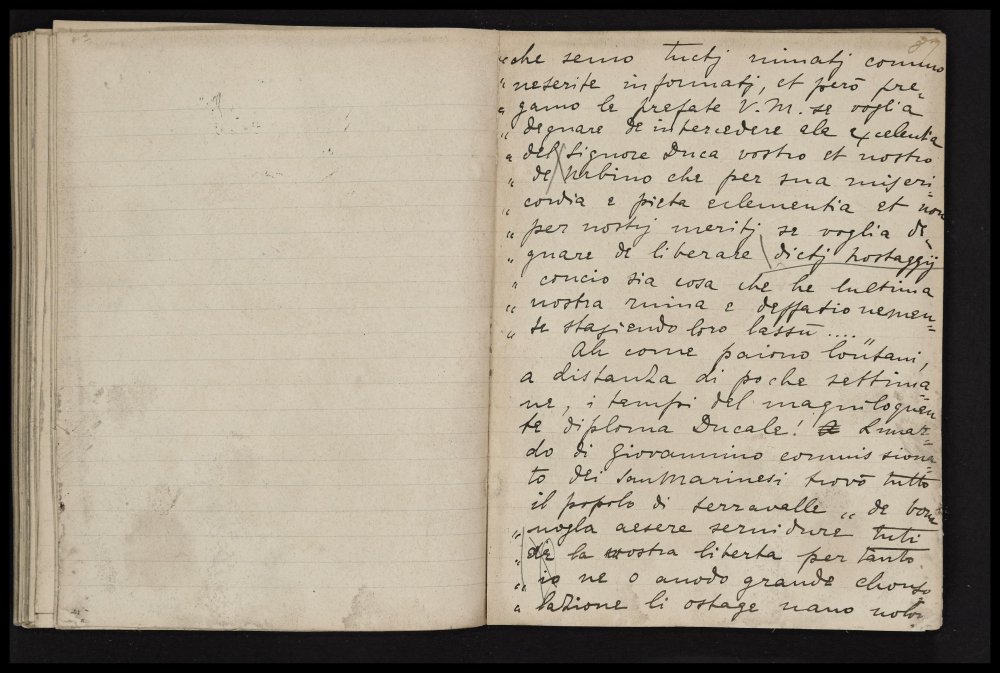 87
"che semo tuctj ruinatj comuno
" neserite informatj, et però pre-
" gamo le prefate V. M. se voglia
" degnare de intercedere ala excelentia
" del Signore Duca vostro et nostro
" de Urbino che per sua miseri-
" cordia e pieta eclementia et non
" per nostrj meritj se voglia de-
" gnare de liberare dictj hostaggij
" concio sia cosa che he lultima
" nostra ruina e deffatione
" te stagiendo loro lassù ...."
Ah come paiono lontani,
a distanza di poche settima-
ne, i tempi del magniloquen-
te diploma Ducale! Lunar-
do di Giovannino commissiona-
to dei Sanmarinesi trovò tutto
il popolo di Serravalle "de bona
" uogla aesere seruidure tuti
" de la vostra liberta per tanto
" io ne o auodo grande chonso-
" lazione li ostage uano